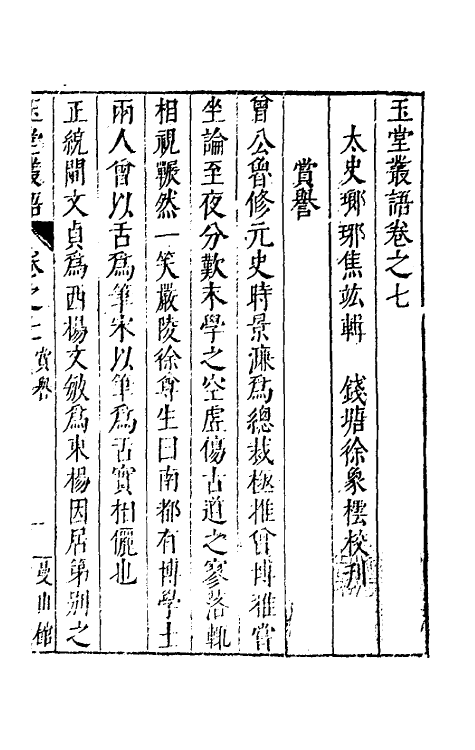 玉堂叢語卷之七
太史瑯琊焦竑輯　錢塘徐象橒校刊
賞譽
曾公魯修元史時景濂為總裁極推曾博雅嘗
坐論至夜分歎末學之空虛傷古道之寥落輒
相視囅然一笑嚴陵徐尊生曰南都有博學士
兩人曾以舌為筆宋以筆為舌實相儷也
正統間文貞為西楊文敏為東楊因居第別之
玉堂叢語　卷之七　賞譽　一　曼山館